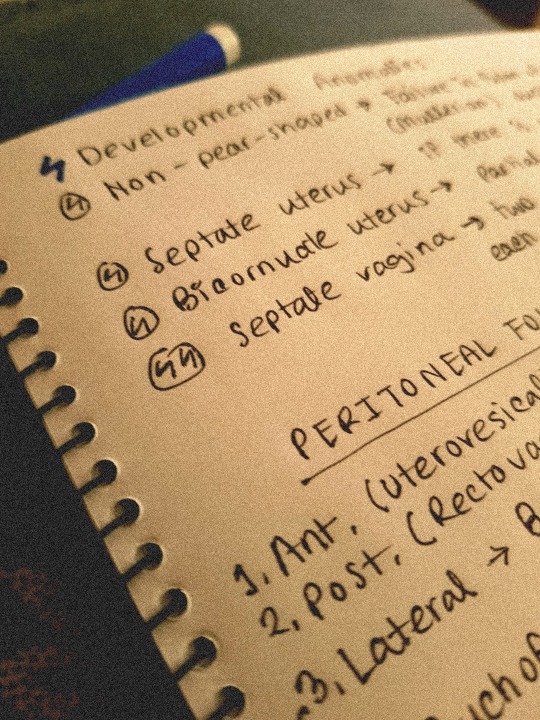 Developmental Anomalies
Non-pear-shaped → Failure in
(Mullerian)
Septate uterus → If there is
Bicornuate uterus → Partial
Septate vagina → two
each
PERITONEAL FO
1. Ant. (uterovesical
2. Post. (Rectova
3. Lateral → B
uch of